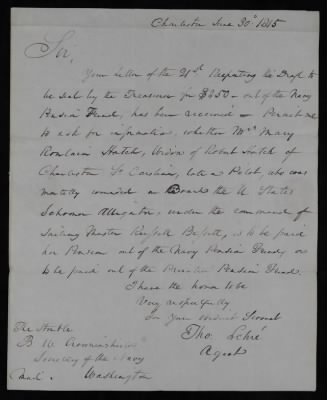 Charleston June 30th 1815
Sir,
Your letter of the 21st Respecting the Draft to
be sent by the Treasurer for $450 - out of the Navy
Pension Fund, has been received - Permit me
to ask for information, whether Mrs Mary
Hatch, Widow of Robert Hatch of
Charleston So Carolina, late a Pilot, who was
mortally wounded on Board the U. States
Schooner Alligator, under the command of
Sailing Master Russell Bassett, is to be paid
her Pension out of the Navy Pension Fund, or
to be paid out of the Pension Fund.
I have the honor to be
Very respectfully
Sir Your obedient Servant
Tho. Lehré
Agent
The Honble
B W Crowninshield
Secretary of the Navy
Washington